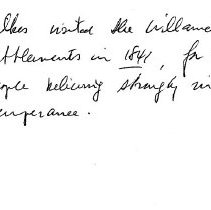 lkes visited the Willame
ttlements in 1841, for
ople believing strongly in
emperance.